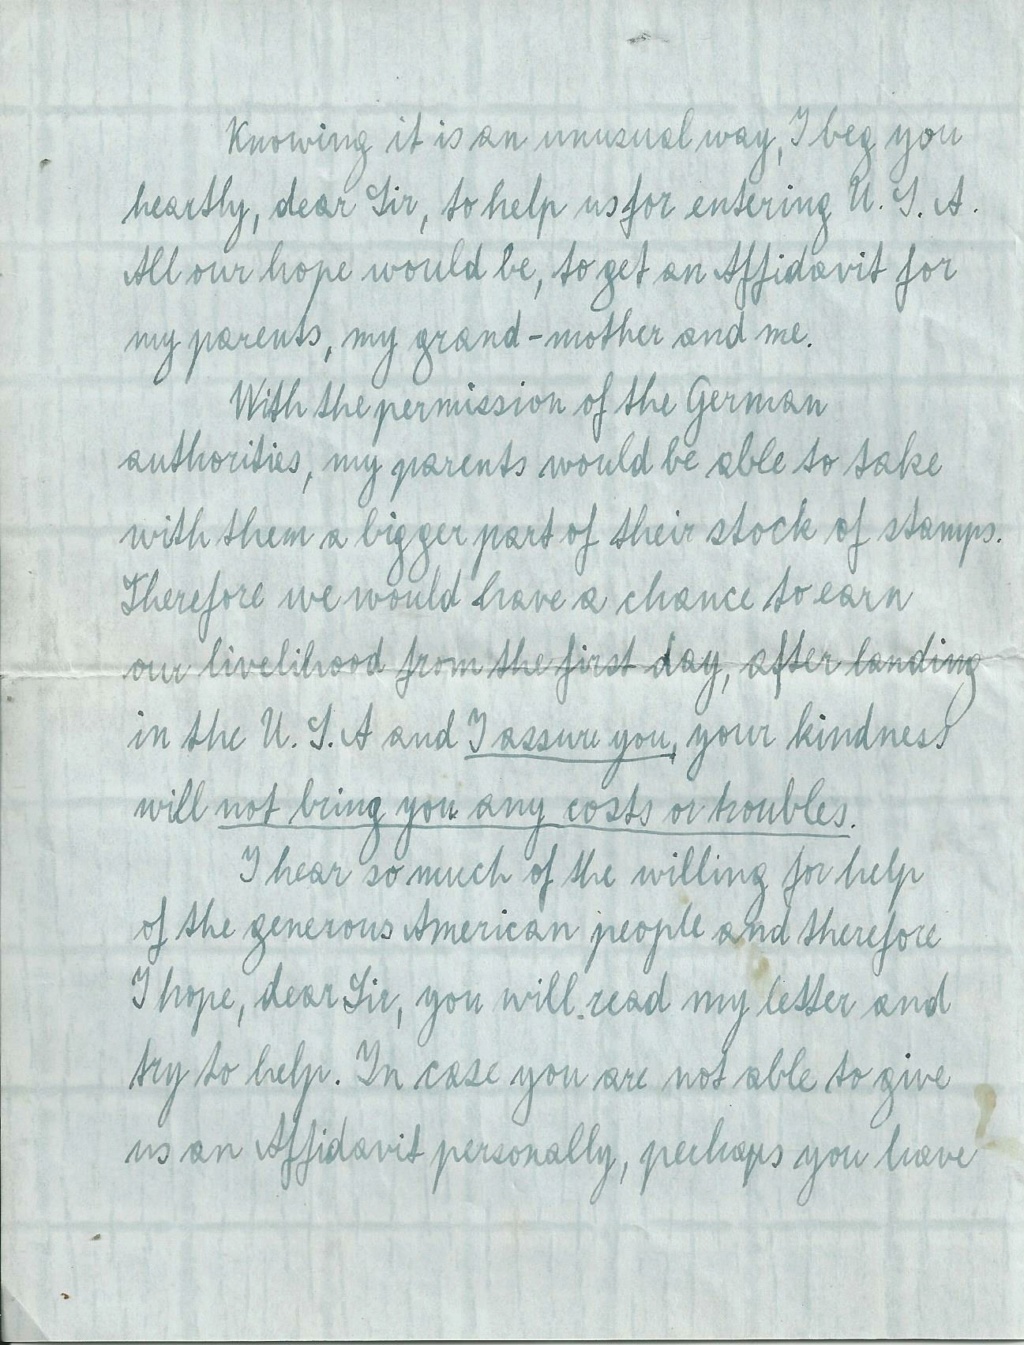 Knowing it is an unusual way, I beg you
heartly, dear Sir, to help us for entering U. S. A.
All our hope would be, to get an Affidavit for
my parents, my grand-mother and me.
With the permission of the German
authorities, my parents would be able to take
with them a bigger part of their stock of stamps.
Therefore we would have a chance to earn
our livelihood from the first day, after landing
in the U. S. A and I assure you, your kindness
will not bring you any costs or troubles.
I hear so much of the willing for help
of the generous American people and therefore
I hope, dear Sir, you will read my letter and
try to help. In case you are not able to give
us an Affidavit personally, perhaps you have